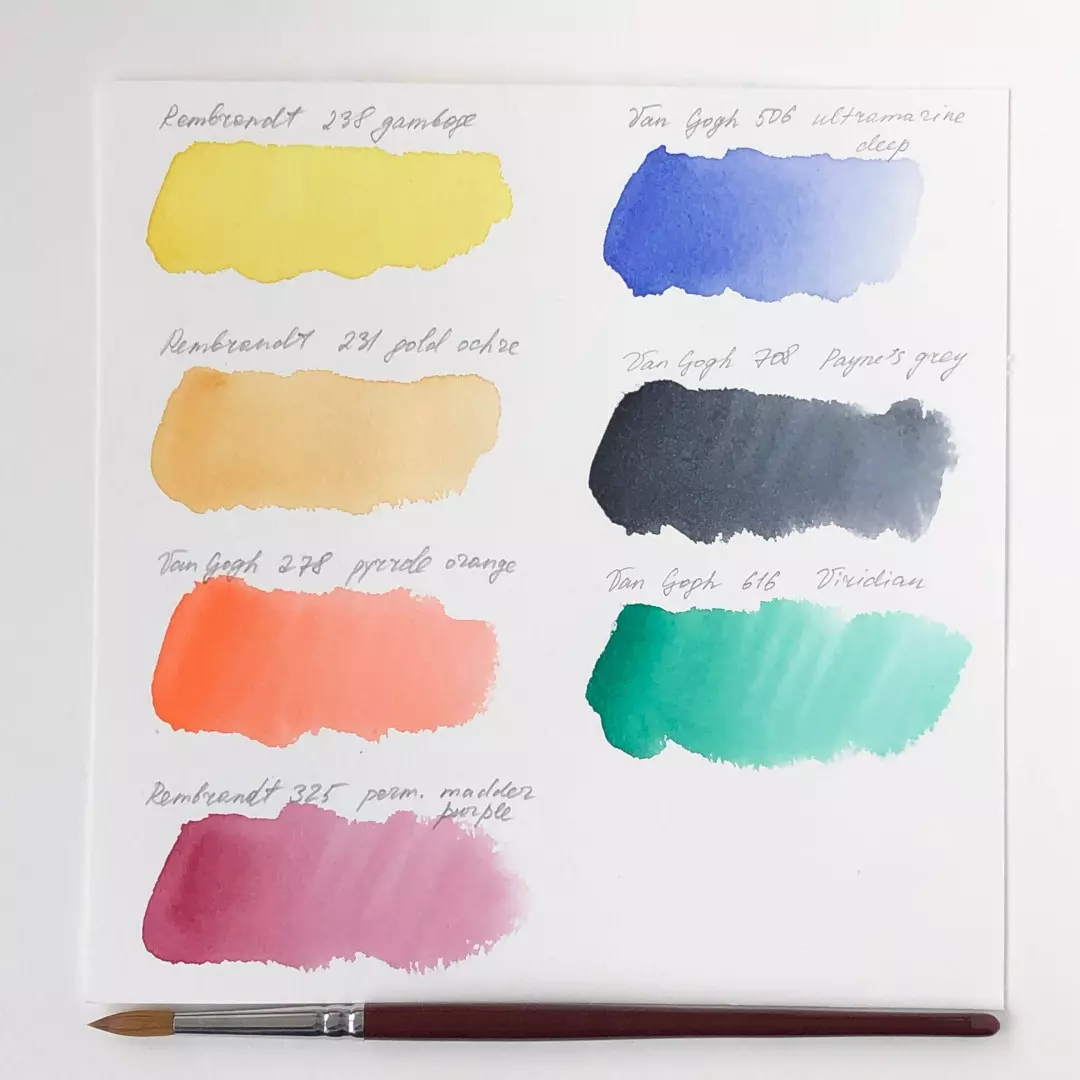 Rembrandt 238 gamboge
Rembrandt 231 gold ochre
Van Gogh 278 pyrrole orange
Rembrandt 325 perm. madder
purple
Van Gogh 506 ultramarine
deep
Van Gogh 708 Payne's grey
Van Gogh 616 Viridian